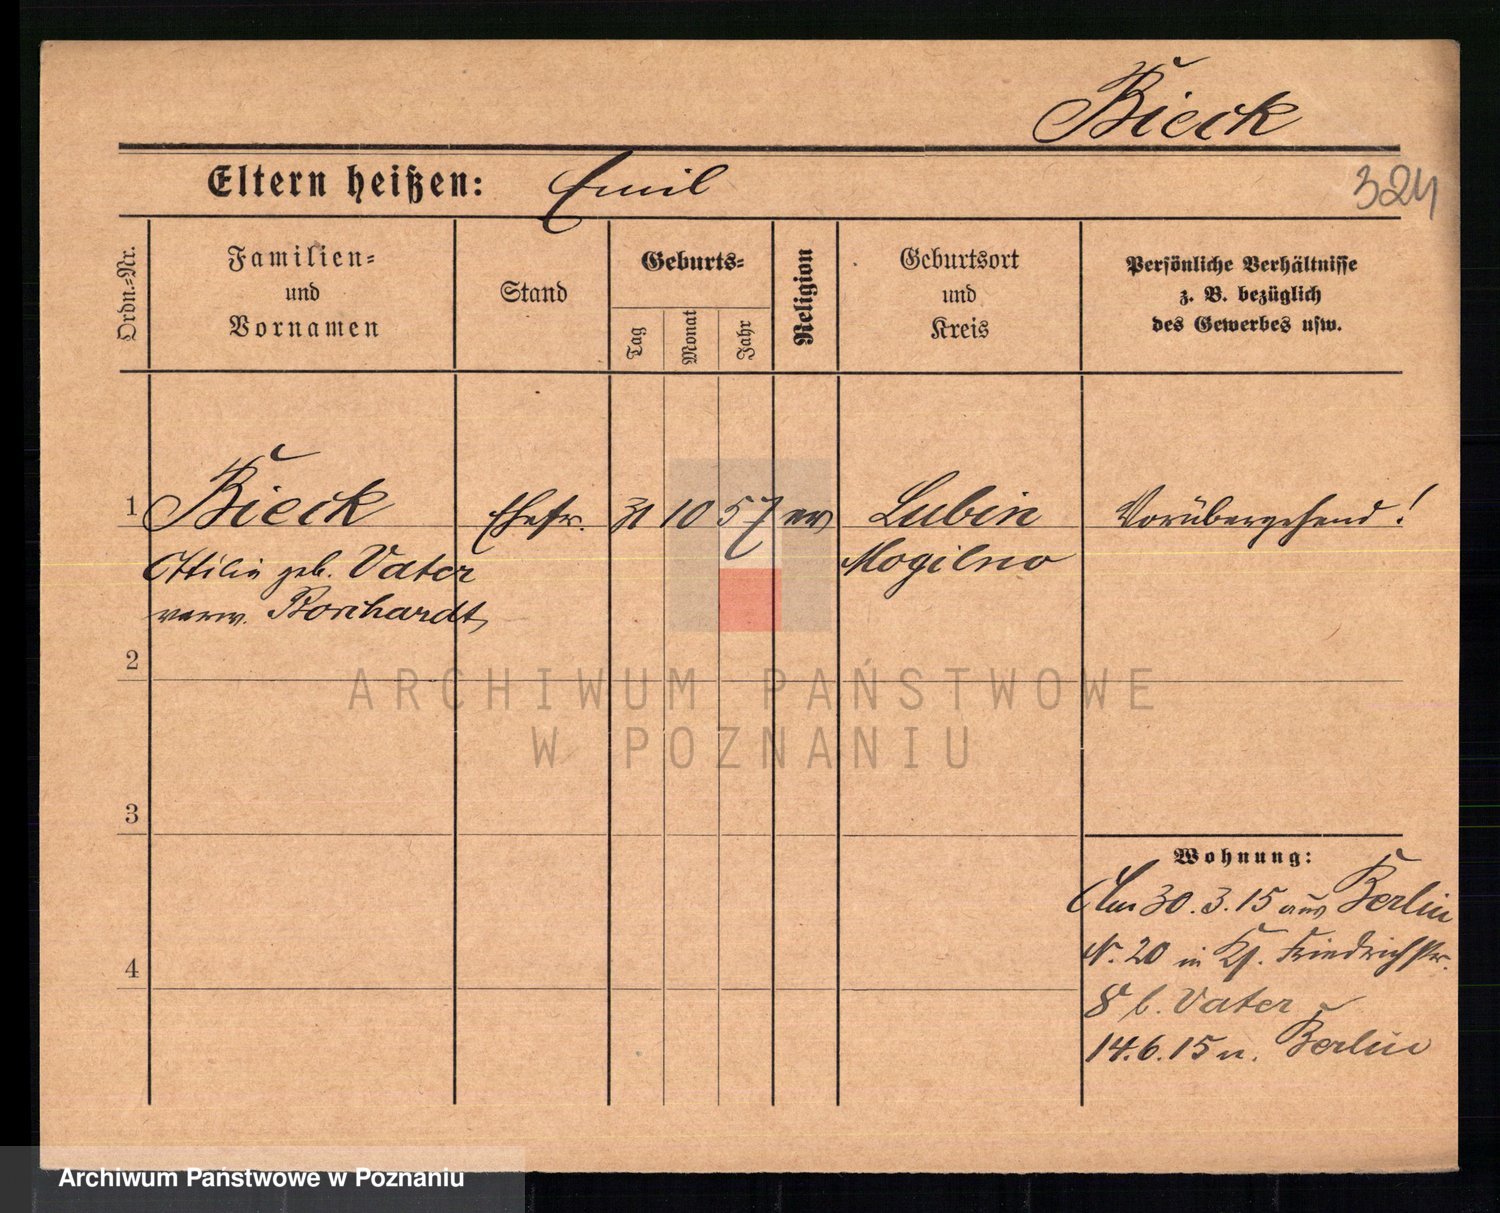 Bieck
Eltern heißen: Emil
324
Ordn.-Nr.
Familien-
und
Vornamen
Stand
Geburts-
Tag
Monat
Jahr
Religion
Geburtsort
und
Kreis
Persönliche Verhältnisse
z. B. bezüglich
des Gewerbes usw.
1 Bieck Ehefr. 31 10 57 ev Lubin Vorübergehend!
Ottilie geb. Vater Mogilno
verw. Borchardt
2
ARCHIWUM PAŃSTWOWE
W POZNANIU
3
Wohnung:
Am 30.3.15 aus Berlin
N. 20 in Kf. Friedrichstr.
4
8 b. Vater
14.6.15 n. Berlin
Archiwum Państwowe w Poznaniu